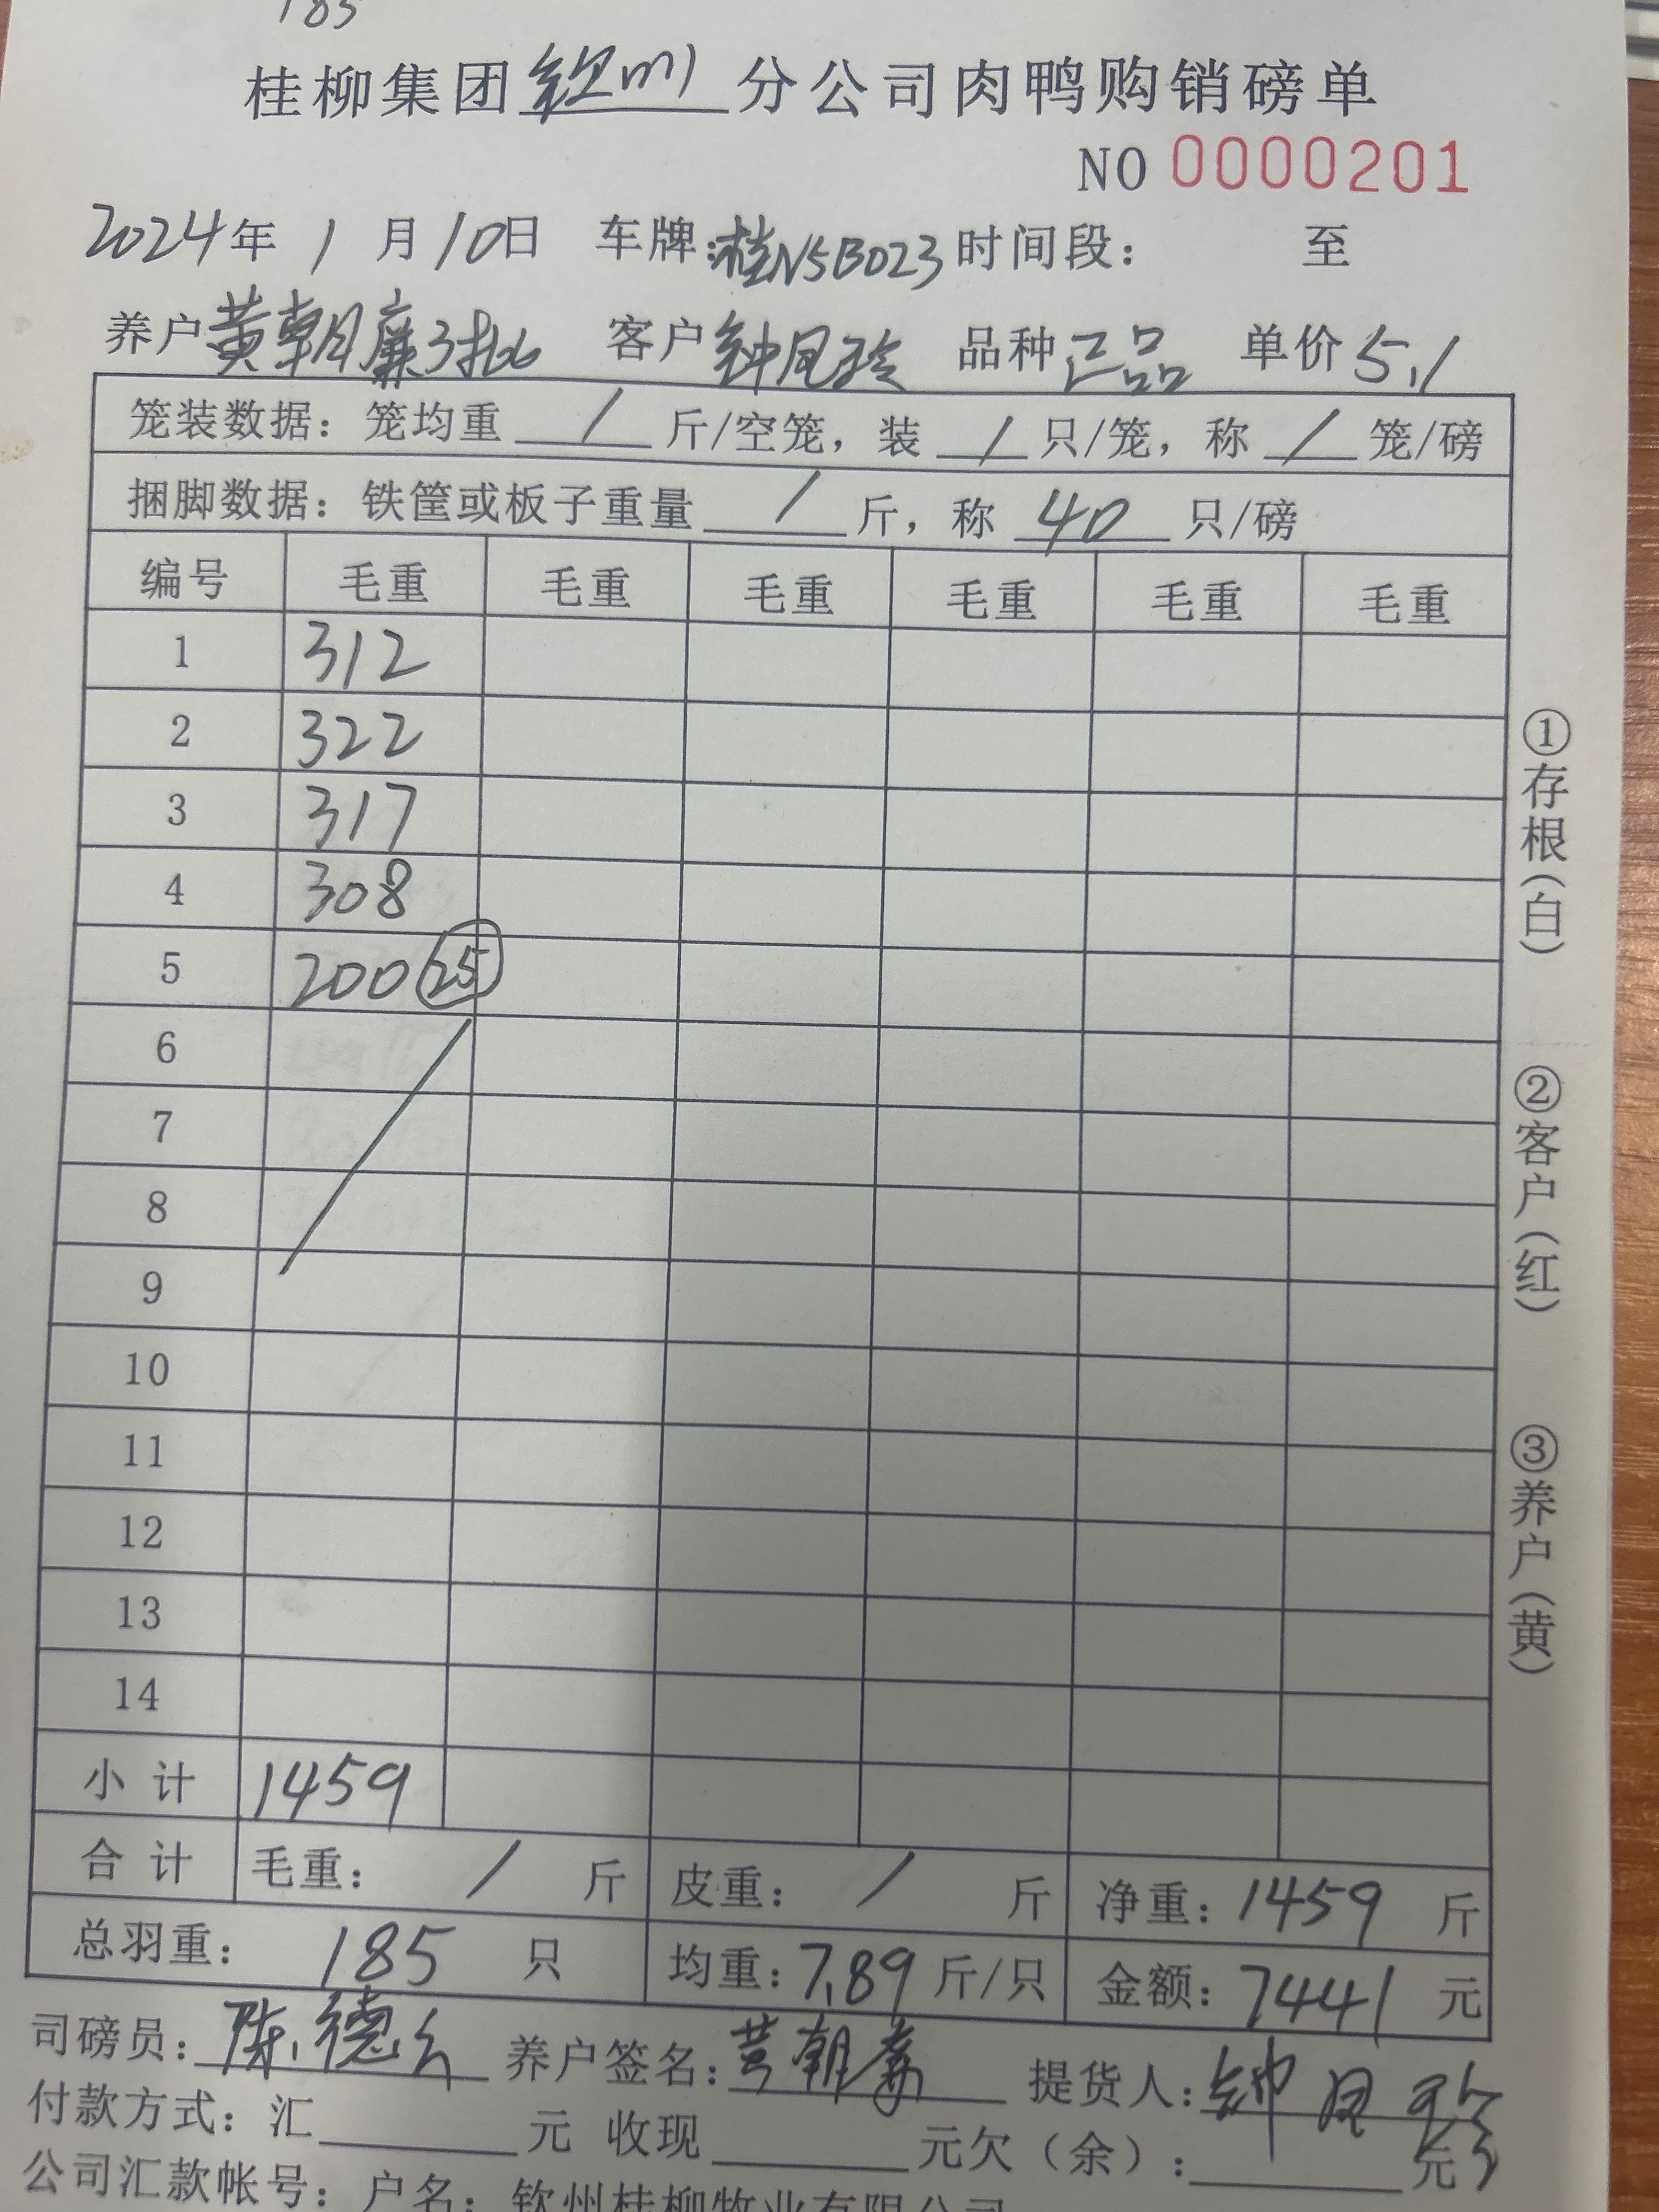 185
桂柳集团钦州分公司肉鸭购销磅单
NO 0000201
2024年 1 月 10日 车牌:桂N5B023 时间段: 至
养户 黄朝廉3批 客户 钟凤玲 品种 正品 单价 5.1
笼装数据: 笼均重 / 斤/空笼, 装 / 只/笼, 称 / 笼/磅
捆脚数据: 铁筐或板子重量 / 斤, 称 40 只/磅
编号 毛重 毛重 毛重 毛重 毛重 毛重
1 312
2 322
3 317
4 308
5 200 25
6
7
8
9
10
11
12
13
14
小计 1459
合计 毛重: / 斤 皮重: / 斤 净重: 1459 斤
总羽重: 185 只 均重: 7.89 斤/只 金额: 7441 元
司磅员: 陈德 养户签名: 黄朝廉 提货人: 钟凤玲
付款方式: 汇 元 收现 元欠(余): 元
公司汇款帐号: 户名: 钦州桂柳牧业有限公司
①存根(白)
②客户(红)
③养户(黄)